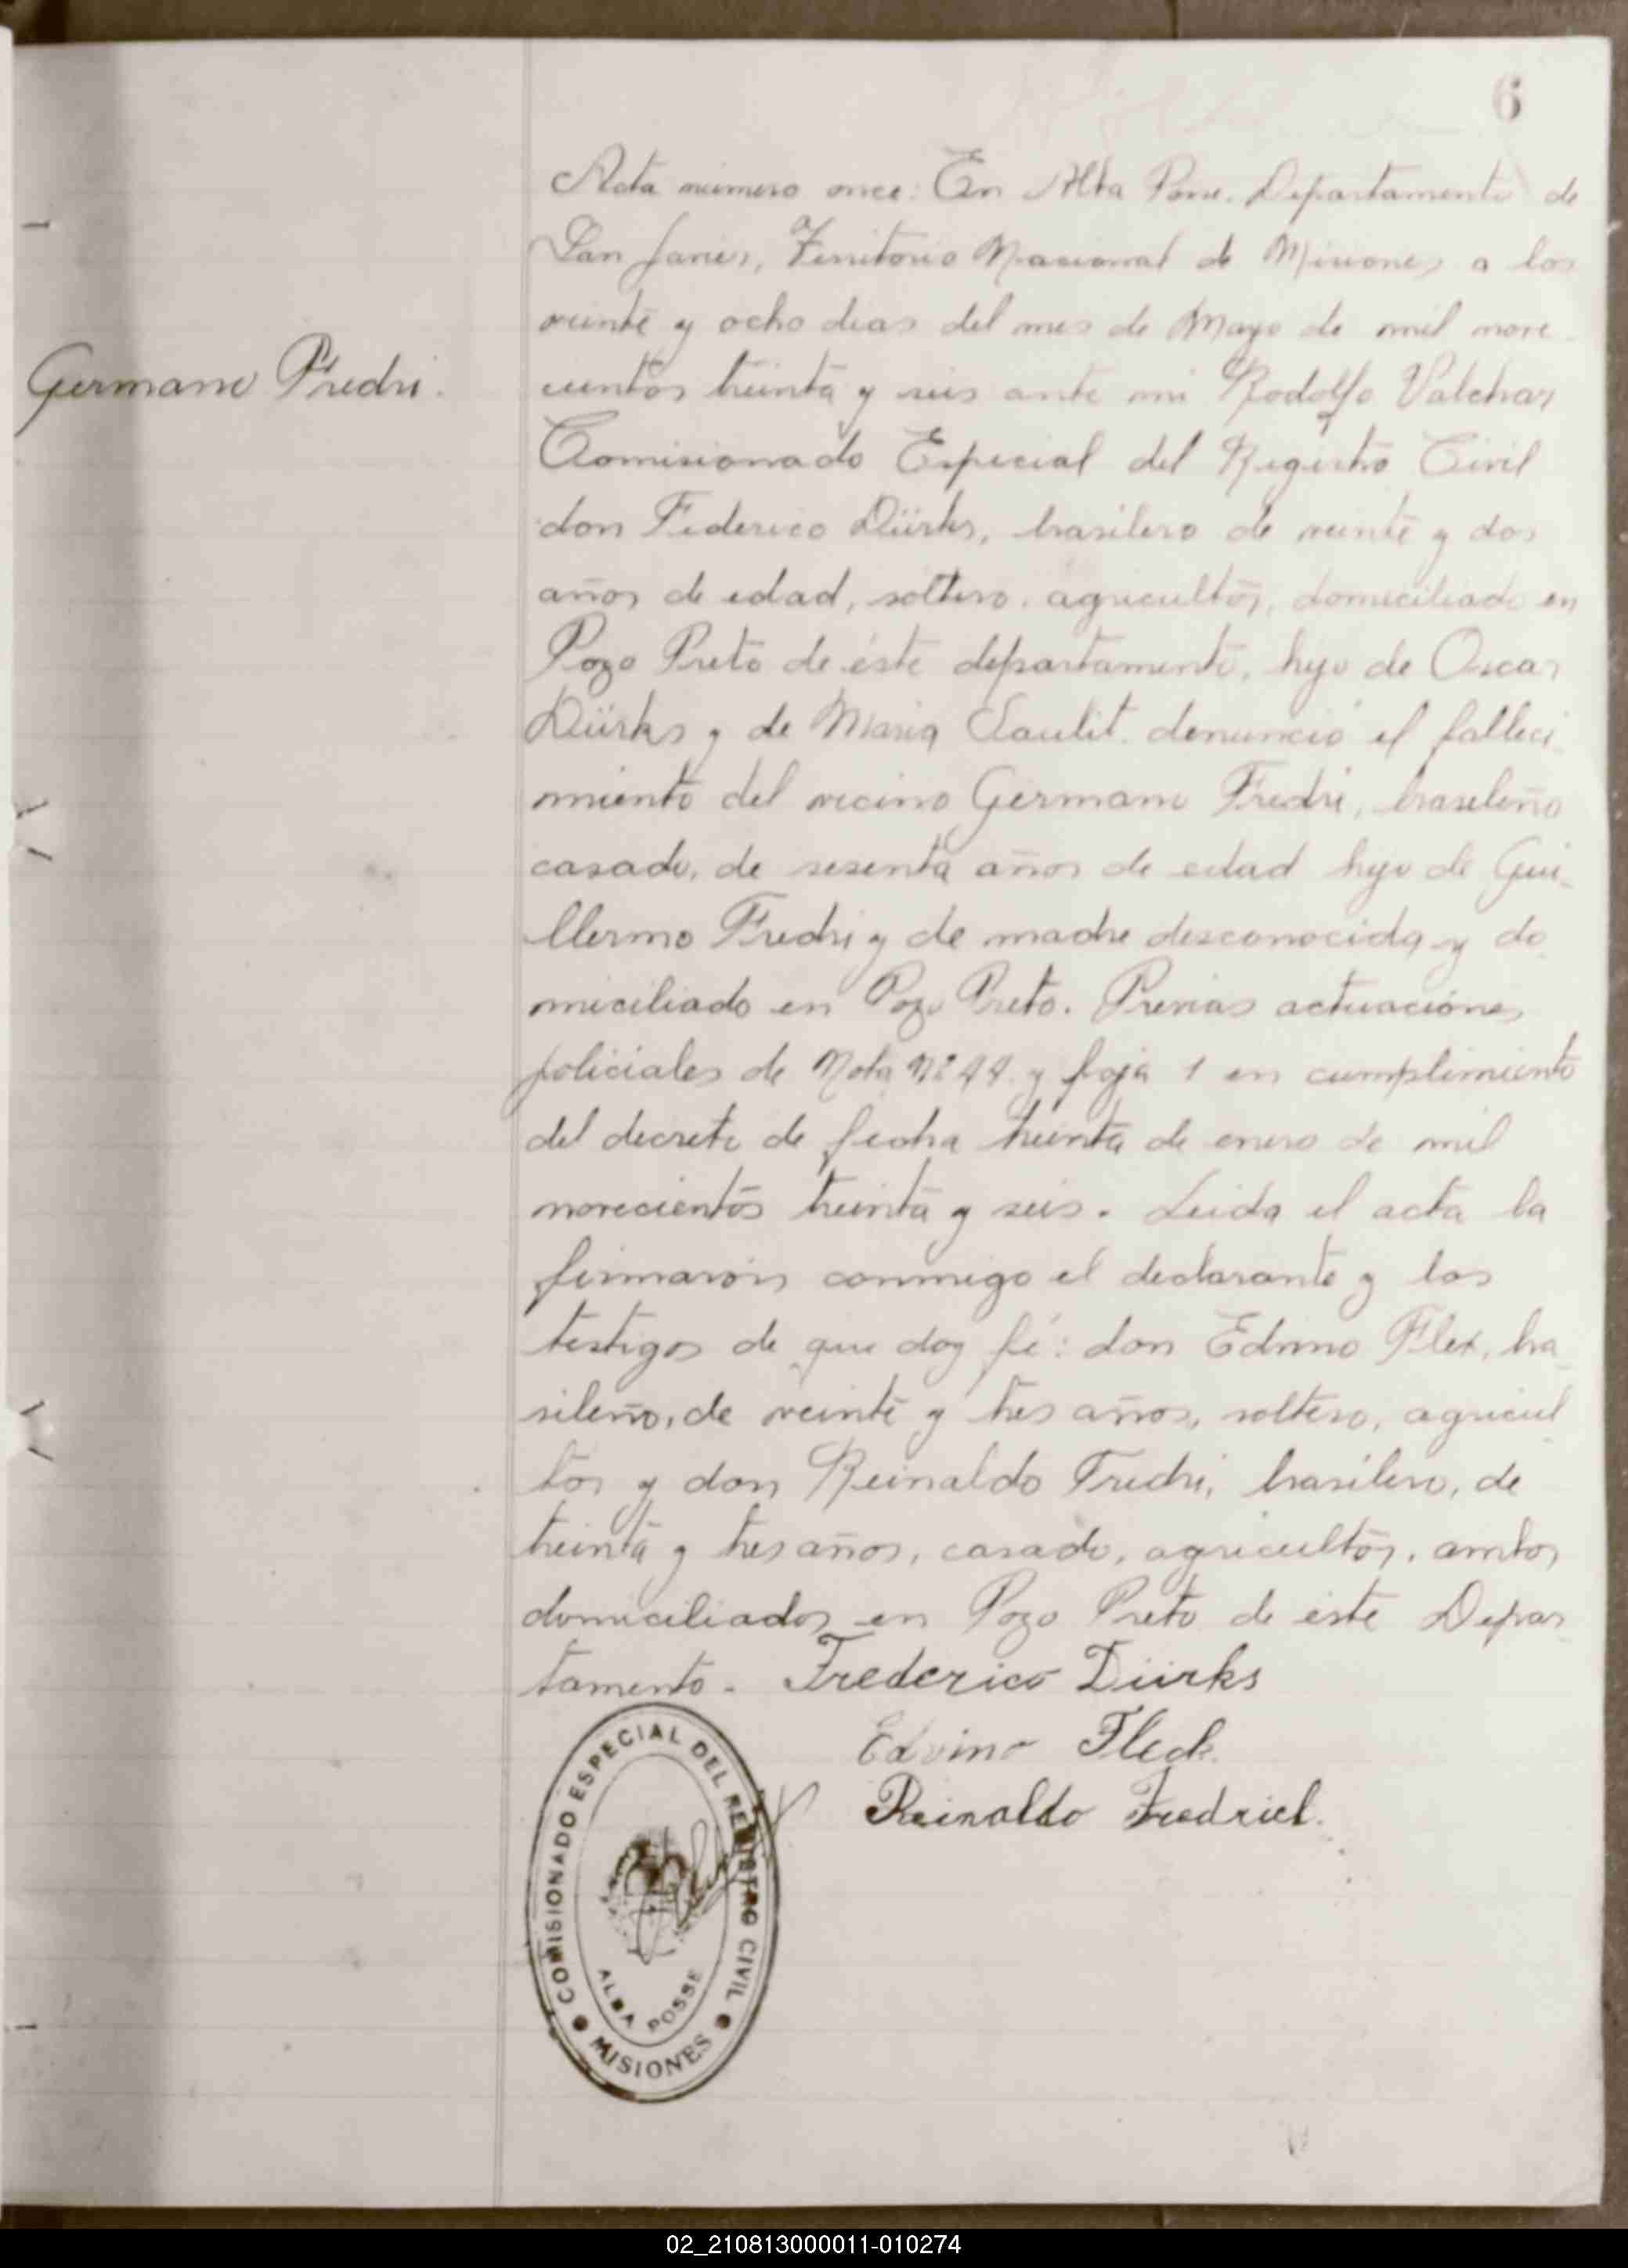 6
Acta número once: En Alba Posse. Departamento de
San Javier, Territorio Nacional de Misiones a los
veinte y ocho dias del mes de Mayo de mil nove
cientos treinta y seis ante mi Rodolfo
Germano Fredri.
Comisionado Especial del Registro Civil
don Federico Dürks, brasilero de veinte y dos
años de edad, soltero, agricultor, domiciliado en
Pozo Preto de éste departamento, hijo de Oscar
Dürks y de Maria denunció el falleci
miento del vecino Germano Fredri, brasileño
casado, de sesenta años de edad hijo de Gui-
llermo Fredri y de madre desconocida y do
miciliado en Pozo Preto. Previas actuaciónes
policiales de Nota Nº 44 y foja 1 en cumplimiento
del decreto de fecha treinta de enero de mil
novecientos treinta y seis. Leida el acta la
firmarón conmigo el declarante y los
testigos de que doy fé: don Edvino Flek, bra
sileño, de veinte y tres años, soltero, agricul
tor y don Reinaldo Fredri, brasilero, de
treinta y tres años, casado, agricultor, ambos
domiciliados en Pozo Preto de éste Depar
tamento. Frederico Dürks
Edvino Fleck
Reinaldo Fredrich
COMISIONADO ESPECIAL DEL REGISTRO CIVIL
ALBA POSSE
MISIONES
02_210813000011-010274